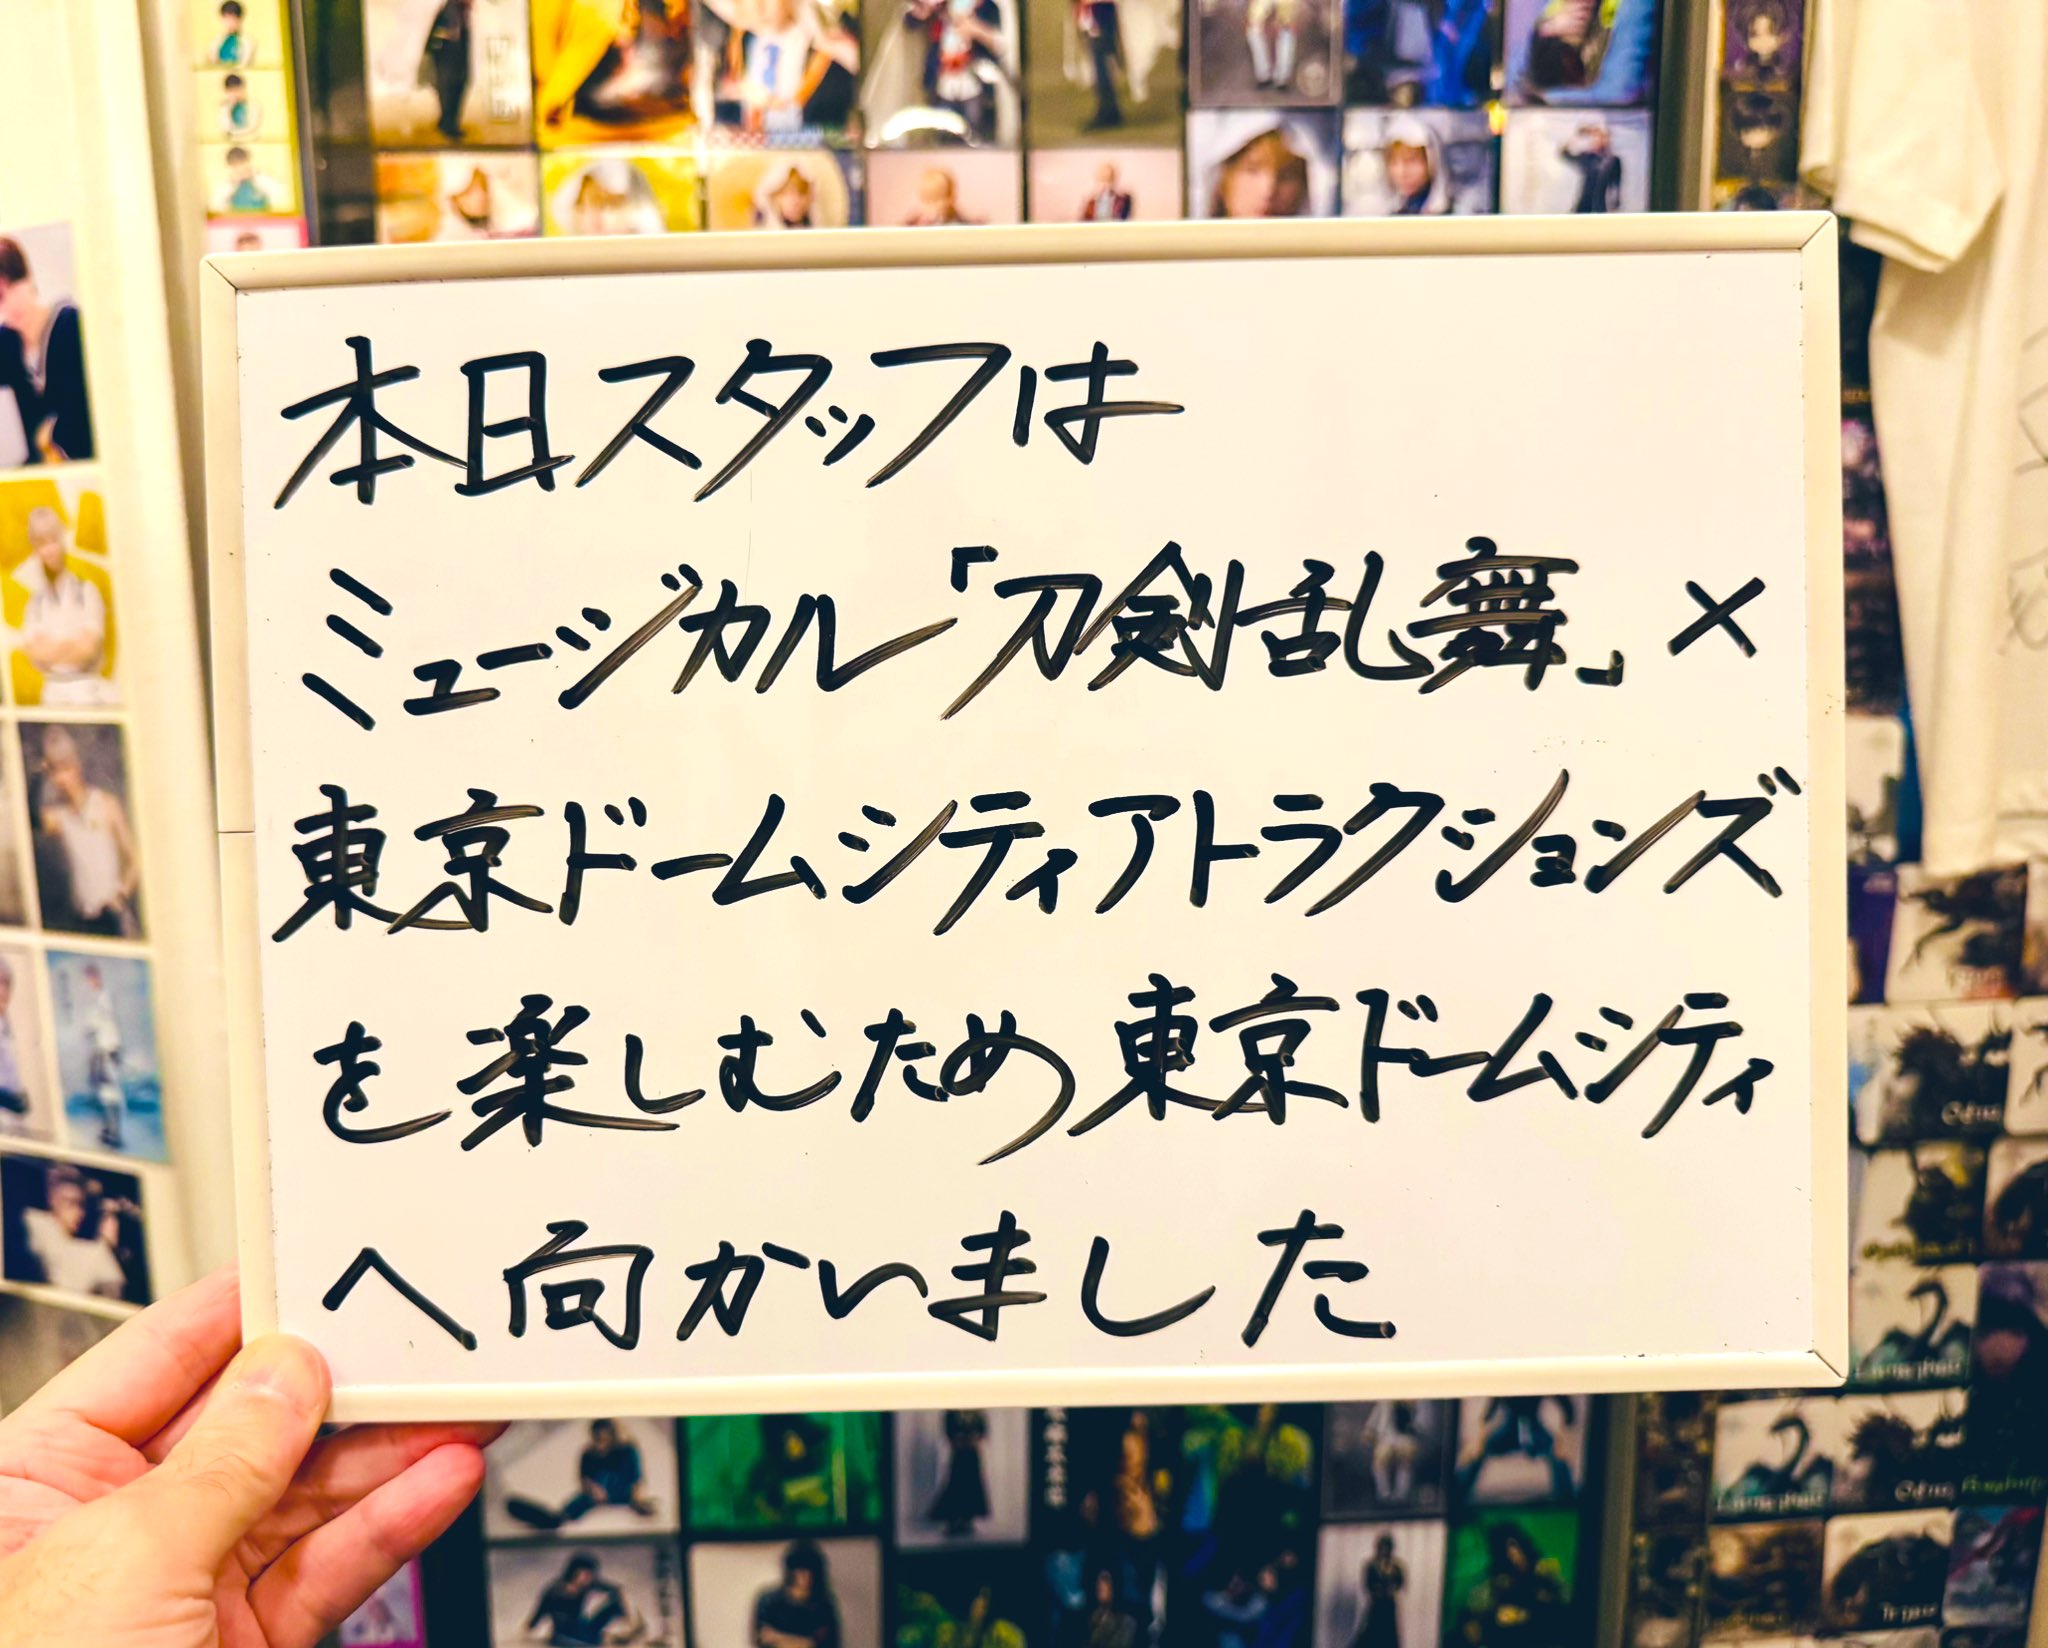 本日スタッフは
ミュージカル「刀剣乱舞」×
東京ドームシティアトラクションズ
を楽しむため東京ドームシティ
へ向かいました